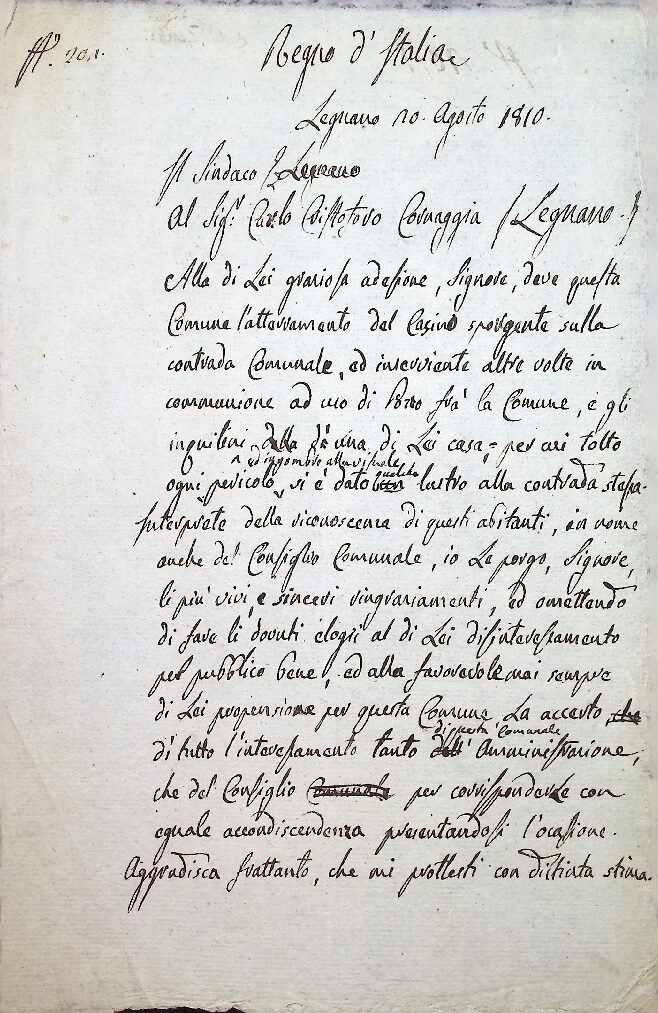 N.° 201.
Regno d'Italia
Legnano 20. Agosto 1810.
Il Sindaco Legnano
Al Sig.r Carlo Cristoforo Cornaggia / Legnano.
Alla di Lei graziosa adesione, Signore, deve questa
Comune l'atterramento del Casino sporgente sulla
contrada Comunale, ed inserviente altre volte in
communione ad uso di Pozzo frà la Comune, e gli
inquilini di Lei casa, per cui tolto
ed ingombro alla visuale qualche
ogni pericolo, si è dato lustro alla contrada stessa.
Interprete della riconoscenza di questi abitanti, in nome
anche del Consiglio Comunale, io Le porgo, Signore,
li più vivi, e sinceri ringraziamenti, ed omettendo
di fare li dovuti elogj al di Lei disinteressamento
pel pubblico bene, ed alla favorevole mai sempre
di Lei propensione per questa Comune La accerto, che
di questa Comunale
di tutto l'interessamento tanto dell' Amministrazione,
che del Consiglio Comunale per corrisponderLe con
eguale accondiscendenza presentandosi l'ocasione.
Aggradisca frattanto, che mi protesti con distinta stima.